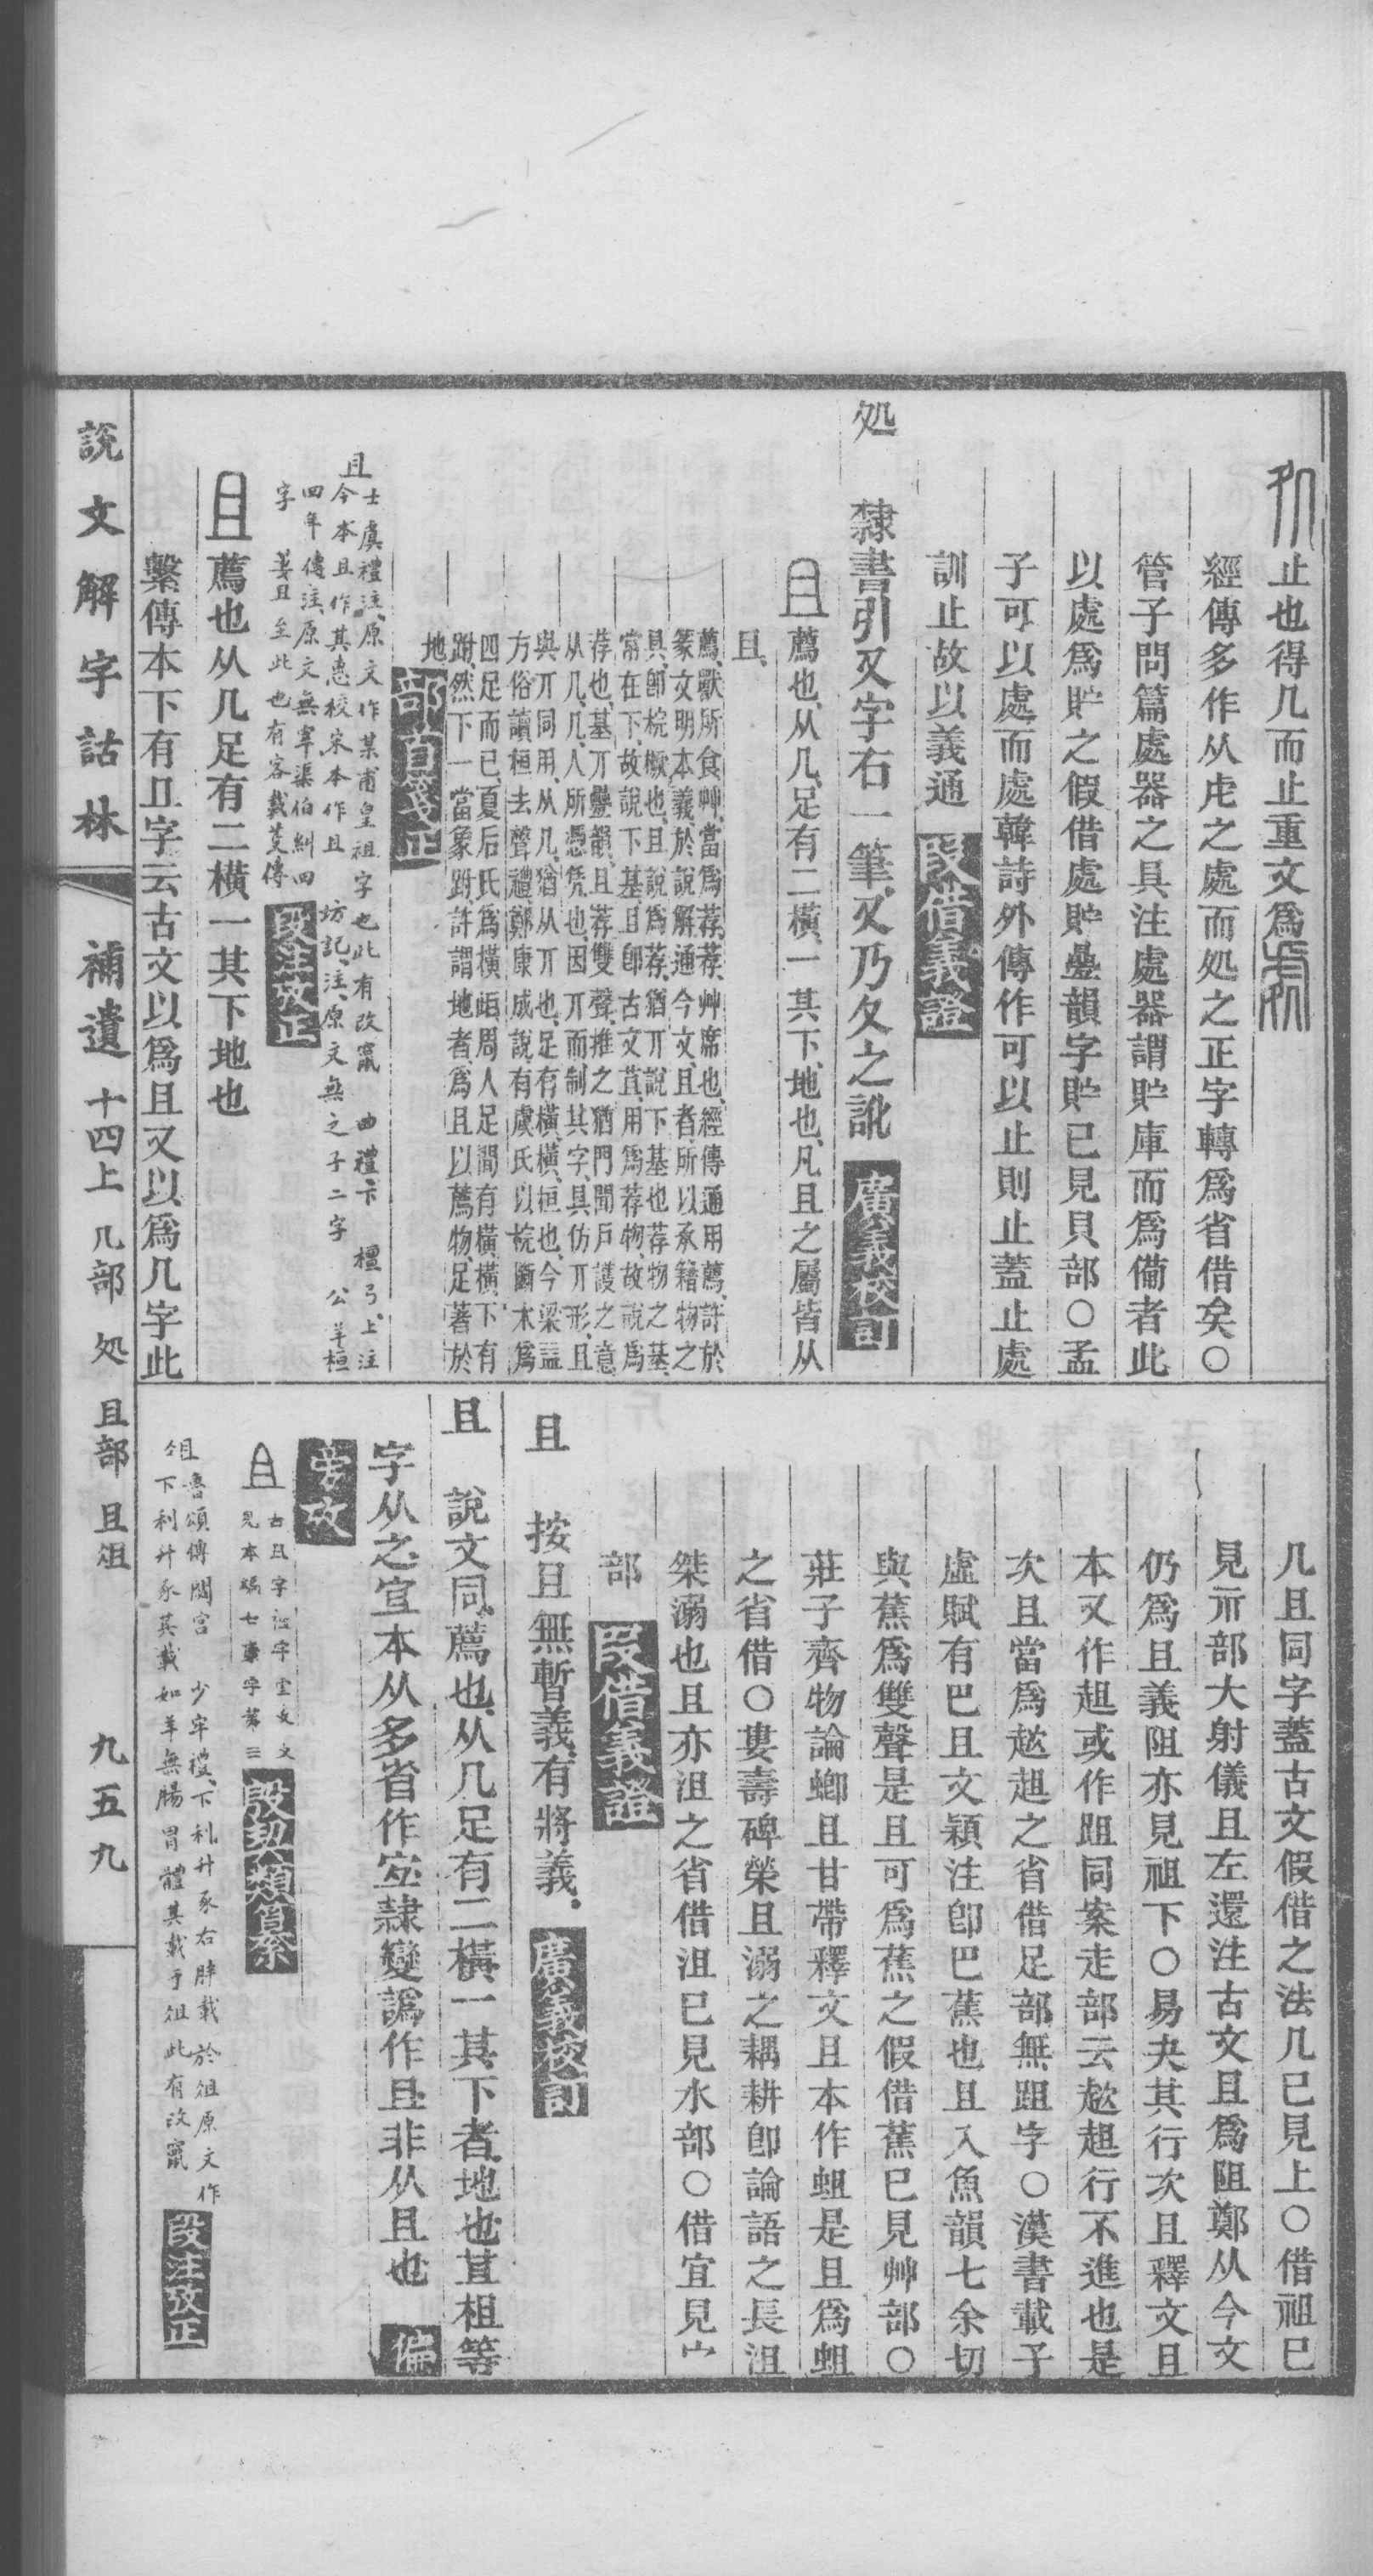 止也得几而止重文爲
經傳多作从虍之處而処之正字轉爲省借矣○
管子問篇處器之具注處器謂貯庫而爲備者此
以處爲貯之假借處貯疊韻字貯已見貝部○孟
子可以處而處韓詩外傳作可以止則止蓋止處
訓止故以義通 段借義證
処 隸書引又字右一筆、又乃夂之訛 廣義校訂
且薦也、从几、足有二橫、一其下、地也、凡且之屬皆从
且、
薦、獸所食艸、當爲荐、荐、艸席也、經傳通用薦、許於
篆文明本義、於說解通今文、且者、所以承藉物之
具、卽梡橛也、且說爲荐、猶丌說下基也、荐物之基、
常在下、故說下基、且卽古文苴、用爲荐物、故說爲
荐也、基丌疊韻、且荐雙聲、推之猶門聞戶護之意
从几、几、人所憑凭也、因丌而制其字、具仿丌形、且
與丌同用、从几、猶从丌也、足有橫、橫、桓也、今梁益
方俗讀桓去聲、禮、鄭康成說、有虞氏以梡斷木爲
四足而已、夏后氏爲橫、岠、周人足間有橫、橫下有
跗、然下一、當象跗、許謂地者、爲且以薦物、足著於
地 部首
且 士虞禮注、原文作某甫皇祖字也此有改竄 曲禮下 檀弓上注
今本且作其惠校宋本作且 坊記注、原文無之子二字 公羊桓
四年傳注、原文無宰渠伯糾四
字 萋且至此也有客載芟傳 段注攷正
且薦也从几足有二橫一其下地也
繫傳本下有丠字云古文以爲且又以爲几字此
几且同字蓋古文假借之法几已見上○借祖已
見示部大射儀且左還注古文且爲阻鄭从今文
仍爲且義阻亦見祖下○易夬其行次且釋文且
本又作趄或作跙同案走部云趑趄行不進也是
次且當爲趑趄之省借足部無跙字○漢書載子
虛賦有巴且文穎注卽巴蕉也且入魚韻七余切
與蕉爲雙聲是且可爲蕉之假借蕉已見艸部○
莊子齊物論螂且甘帶釋文且本作蛆是且爲蛆
之省借○婁壽碑榮且溺之耦耕卽論語之長沮
桀溺也且亦沮之省借沮已見水部○借宜見宀
部 段借義證
且 按且無暫義、有將義、 廣義校訂
且 說文同、薦也、从几足有二橫一其下者、地也苴租等
字从之、宜本从多省作宜隸變譌作且非从且也 偏
旁攷
且 古且字祖字重文文
見本編七葉字第三 殷契類纂
俎 魯頌傳閟宮 少牢禮、下利升豕右胖載於俎原文作
俎下利升豕其載如羊無腸胃體其載于俎此有改竄 段注攷正
說文解字詁林 補遺 十四上 几部 処 且部 且俎 九五九